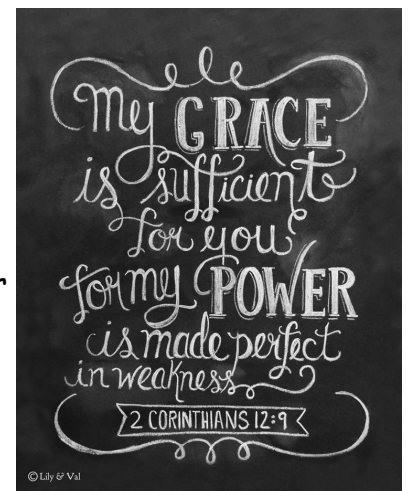 My GRACE
is sufficient
for you
for my POWER
is made perfect
in weakness
2 CORINTHIANS 12:9
© Lily & Val